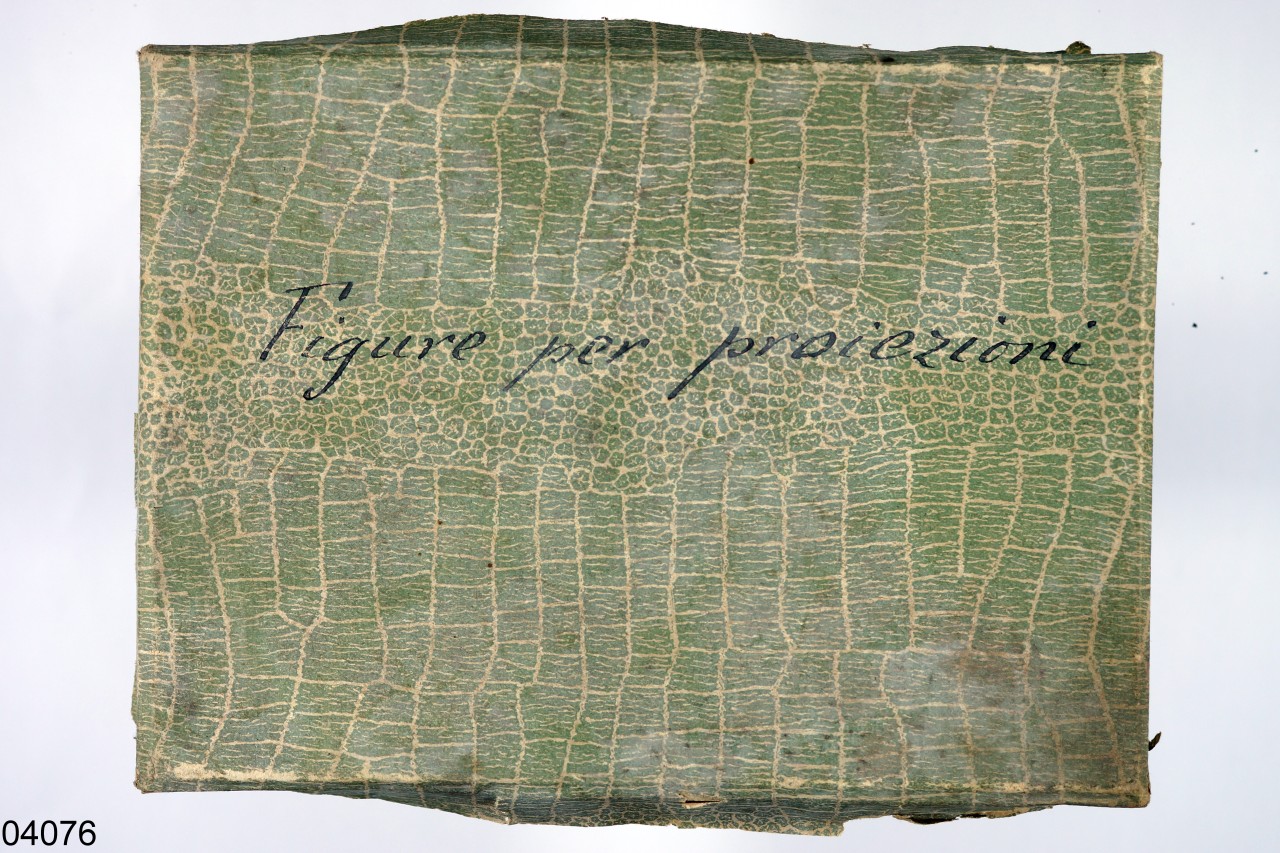 Figure per proiezioni
04076